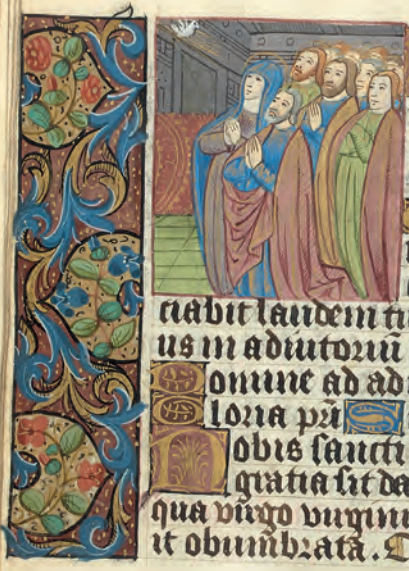 ciabit laudem tu
us in adiutoriū
Domine ad ad
Gloria pr̄i S
Nobis sancti
gratia sit da
qua virgo virginu
it obumbrata.